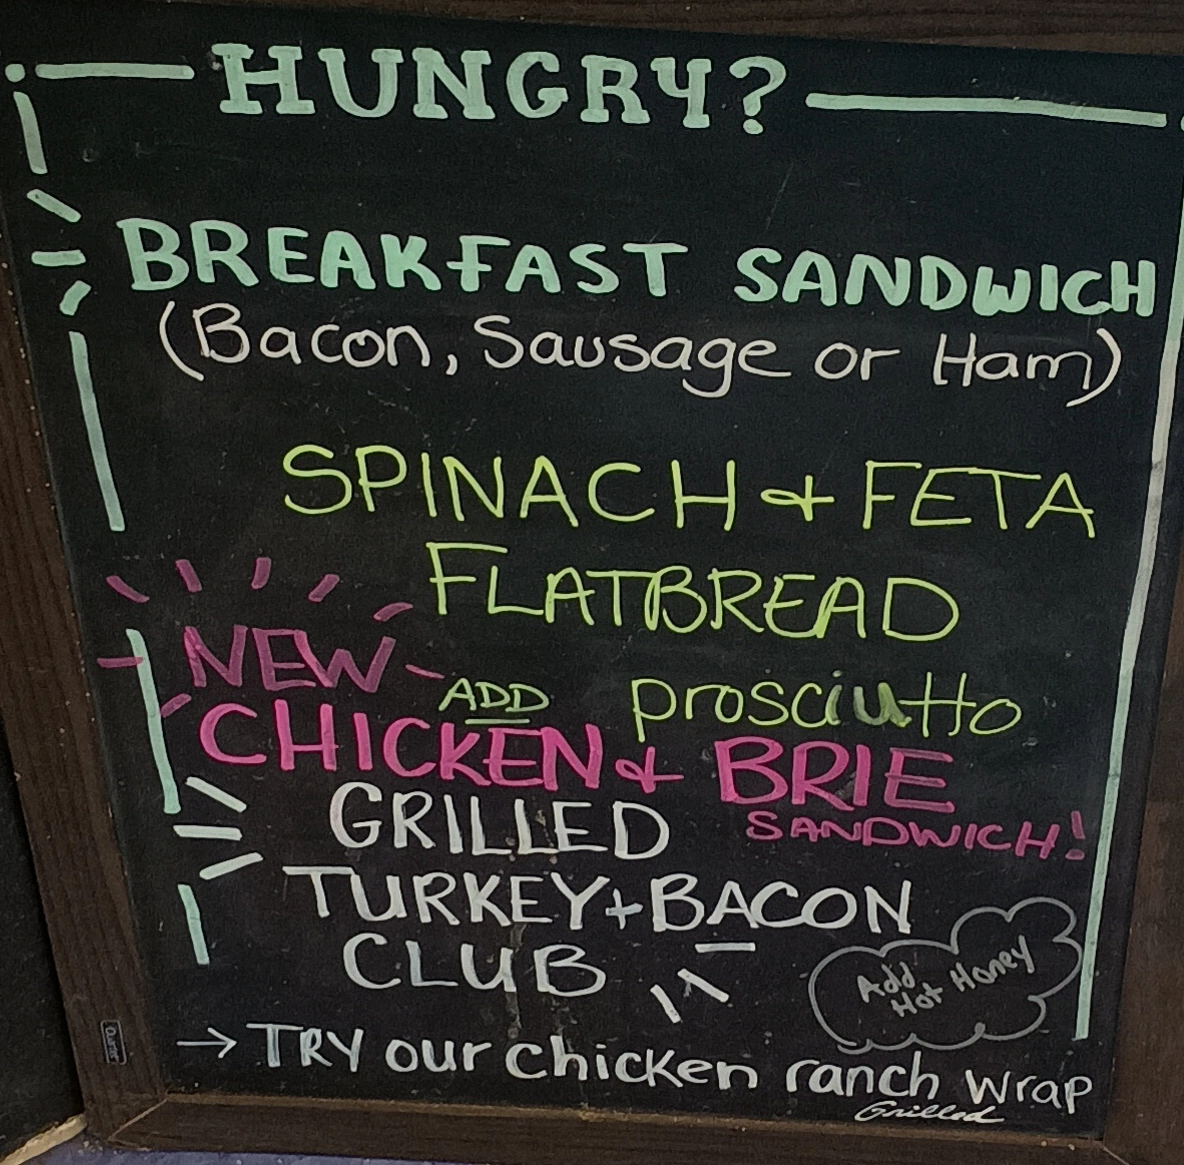 HUNGRY?
BREAKFAST SANDWICH
(Bacon, Sausage or Ham)
SPINACH & FETA
FLATBREAD
ADD prosciutto
NEW
CHICKEN & BRIE
SANDWICH!
GRILLED
TURKEY+BACON
CLUB
Add
Hot Honey
→ TRY our chicken ranch wrap
Grilled